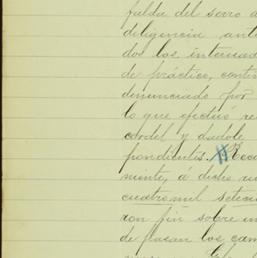 falda del serro a
diligencia ant
dos los interesad
de práctico, conti
denunciado por
lo que efectuó re
cordel y dadole
pondientes. Reco
miente, á dichs
cuatro mil setecie
con fin sobre un
de pasan los cam